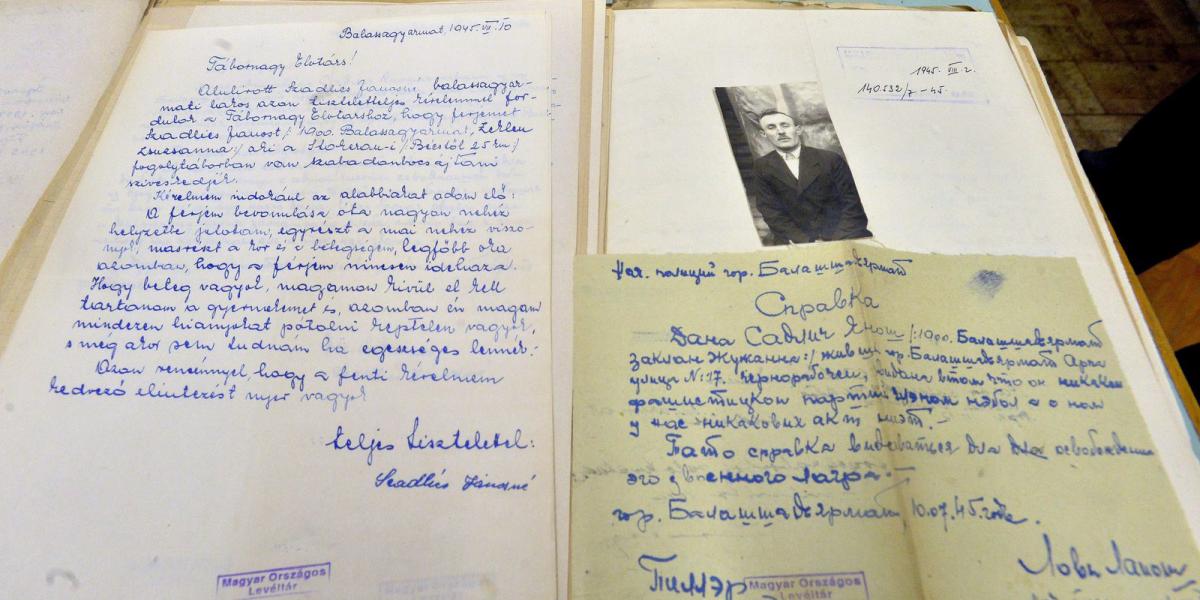 Balassagyarmat, 1945. VII. 10
Tábornagy Elvtárs!
Alulirott Szadlics Jánosné balassagyar-
mati lakos azon tiszteletteljes kérelemmel for-
dulok a Tábornagy Elvtárshoz, hogy férjemet
Szadlics Jánost /: 1900. Balassagyarmat,
Zsuzsanna :/ aki a Stokerau-i /: Bécstől 25 km :/
fogolytáborban van szabadonbocsájtani
szíveskedjék.
Kérelmem indokául az alábbiakat adom elő:
A férjem bevonulása óta nagyon nehéz
helyzetbe jutottam, egyrészt a mai nehéz viszo-
nyok, másrészt a kor és a betegségem, legfőbb oka
azomban, hogy a férjem nincsen idehaza.
Hogy beteg vagyok, magamon kívül el kell
tartanom a gyermekemet is, azomban én magam
mindezen hiányokat pótolni képtelen vagyok,
s még akkor sem tudnám ha egésséges lennék.
Azon reménnyel, hogy a fenti kérelmem
kedvező elintézést nyer vagyok
teljes tisztelettel:
Szadlics Jánosné
Magyar Országos
Levéltár
1945. VIII. 2.
140.532/7 - 45.
Нач. полиций гор. Балашшадярмат
Справка
Дана Садлич Янош /: 1900. Балашшадярмат
заклан Жужанна :/ гор. Балашшадярмат
улица № 17. чернорабочем, в том что он никакои
фашистицкои партии членом нэбол а о ном
у нас никакових акт нэт. -
Гато справка видеваться для для освобождение
эго з военного лагра -
гор. Балашшадярмат, 10.07.45. годе.
Magyar Országos
Levéltár